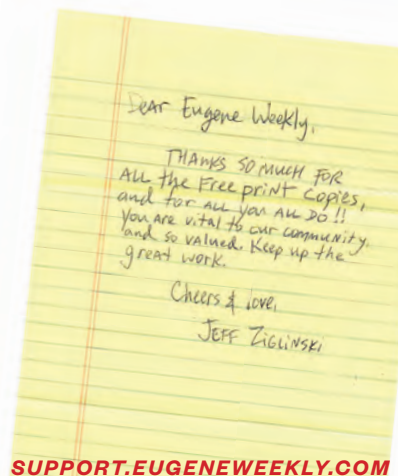 Dear Eugene Weekly,
THANKS SO MUCH FOR
ALL the Free print copies,
and for ALL you ALL DO!!
you are vital to our community.
and so valued. Keep up the
great work.
Cheers & love,
JEFF ZIGLINSKI
SUPPORT.EUGENEWEEKLY.COM